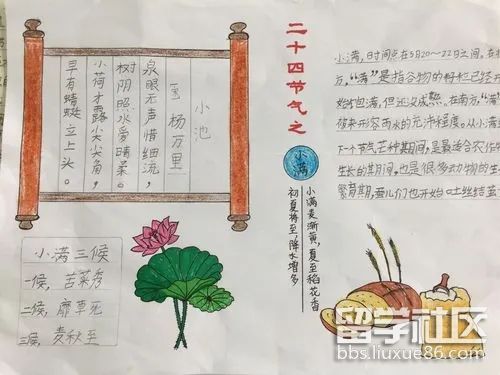 二十四节气之
小满
小池
杨万里
泉眼无声惜细流,
树阴照水爱晴柔。
小荷才露尖尖角,
早有蜻蜓立上头。
小满,时间点在5月20~22日之间。在
方,“满”是指谷物的籽粒已经
始饱满,但还没成熟。在南方,“满
被来形容雨水的充沛程度。从小满
下一个节气芒种期间,是最适合农作
生长的时期间,也是很多动物的生
繁育期,蚕儿们也开始吐丝结茧
小满麦渐黄,夏至稻花香
初夏将至,降水增多
小满三候
一候,苦菜秀
二候,靡草死
三候,麦秋至
留学社区
bbs.liuxue86.com